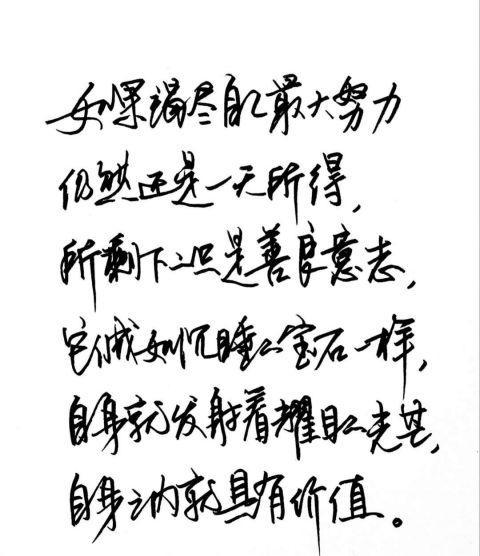 如果竭尽自己最大努力
仍然还是一无所得，
所剩下只是善良意志，
它仍如沉睡之宝石一样，
自身就发射着耀目之光芒，
自身之内就具有价值。